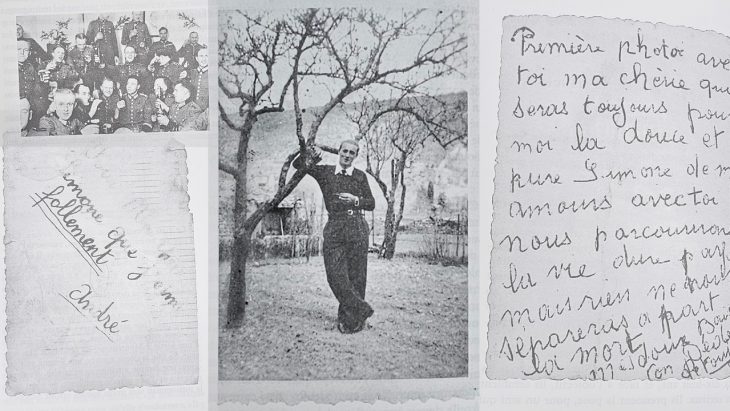 imone que j'em
follement
André
Première photo ave
toi ma chérie qui
seras toujours pour
moi la douce et
pure Simone de m
amours avec toi
nous parcourron
la vie dure pa
mais rien ne nou
sépareras a part
la mort